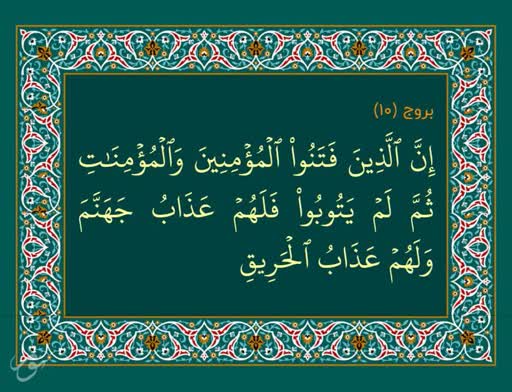 بروج (۱۰)
إِنَّ ٱلَّذِينَ فَتَنُوا۟ ٱلْمُؤْمِنِينَ وَٱلْمُؤْمِنَـٰتِ
ثُمَّ لَمْ يَتُوبُوا۟ فَلَهُمْ عَذَابُ جَهَنَّمَ
وَلَهُمْ عَذَابُ ٱلْحَرِيقِ